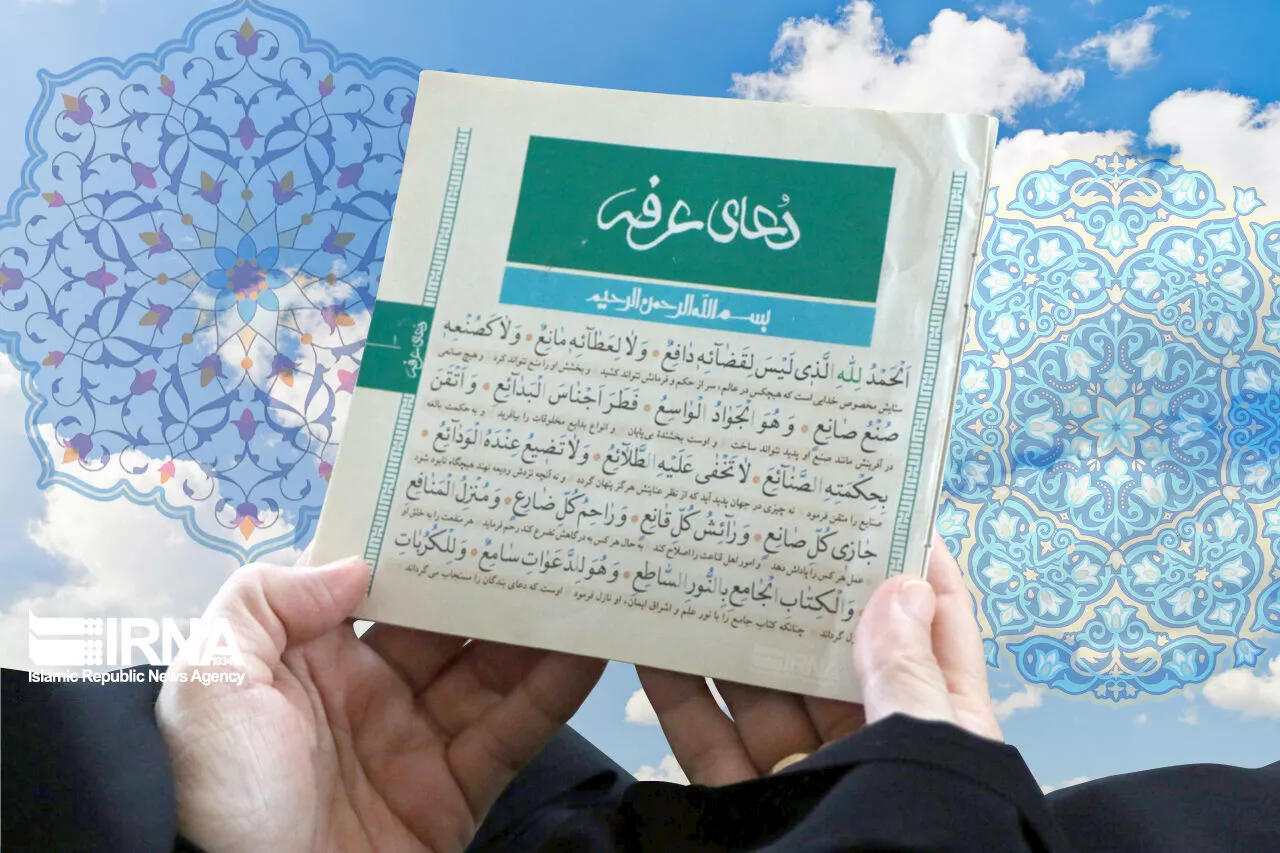 دُعای عرفه
بسم الله الرحمن الرحیم
اَلْحَمْدُ لِلّٰهِ الَّذى لَيْسَ لِقَضآئِهِ دافِعٌ وَلا لِعَطآئِهِ مانِعٌ وَلا كَصُنْعِهِ
ستایش مخصوص خدایی است که هیچکس در عالم، سر از حکم و فرمانش نتواند کشید و بخشش او را منع نتواند کرد و هیچ صانعی
صُنْعُ صانِعٍ وَهُوَ الْجَوادُ الْواسِعُ فَطَرَ اَجْناسَ الْبَدآئِعِ وَاَتْقَنَ
در آفرینش مانند صنع او پدید نتواند ساخت و اوست بخشندهٔ بی‌پایان و انواع بدایع مخلوقات را بیافرید و به حکمت بالغه
بِحِكْمَتِهِ الصَّنآئِعَ لا تَخْفى عَلَيْهِ الطَّلآئِعُ وَلا تَضيعُ عِنْدَهُ الْوَدآئِعُ
صنایع را متقن فرمود نه چیزی در جهان پدید آید که از نظر عنایتش هرگز پنهان گردد و نه آنچه نزدش ودیعه نهند هیچگاه نابود شود
جازى كُلِّ صانِعٍ وَرآئِشُ كُلِّ قانِعٍ وَراحِمُ كُلِّ ضارِعٍ وَمُنْزِلُ الْمَنافِعِ
عمل هر کس را پاداش دهد و امور اهل قناعت را اصلاح کند به حال هر کس به درگاهش تضرع کند رحم فرماید هر منفعت را به خلق او
وَالْكِتابِ الْجامِعِ بِالنُّورِ السّاطِعِ وَهُوَ لِلدَّعَواتِ سامِعٌ وَلِلْكُرُباتِ
گرداند چنانکه کتاب جامع را با نور علم و اشراق ایمان، او نازل فرمود اوست که دعای بندگان را مستجاب می‌گرداند
دعای عرفه
IRNA
1934
Islamic Republic News Agency
IRNA